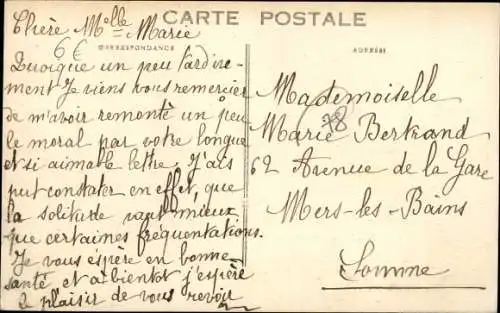 CARTE POSTALE
CORRESPONDANCE
ADRESSE
Chère Melle Marie
6€
Quoique un peu tardive-
ment Je viens vous remercier
de m'avoir remonté un peu
le moral par votre longue
et si aimable lettre. J'ais
put constater en effet, que
la solitude vaut mieux
que certaines fréquentations.
Je vous espère en bonne
santé et a bientot j'espère
le plaisir de vous revoir
Mademoiselle
78
Marie Bertrand
62 Avenue de la Gare
Mers-les-Bains
Somme